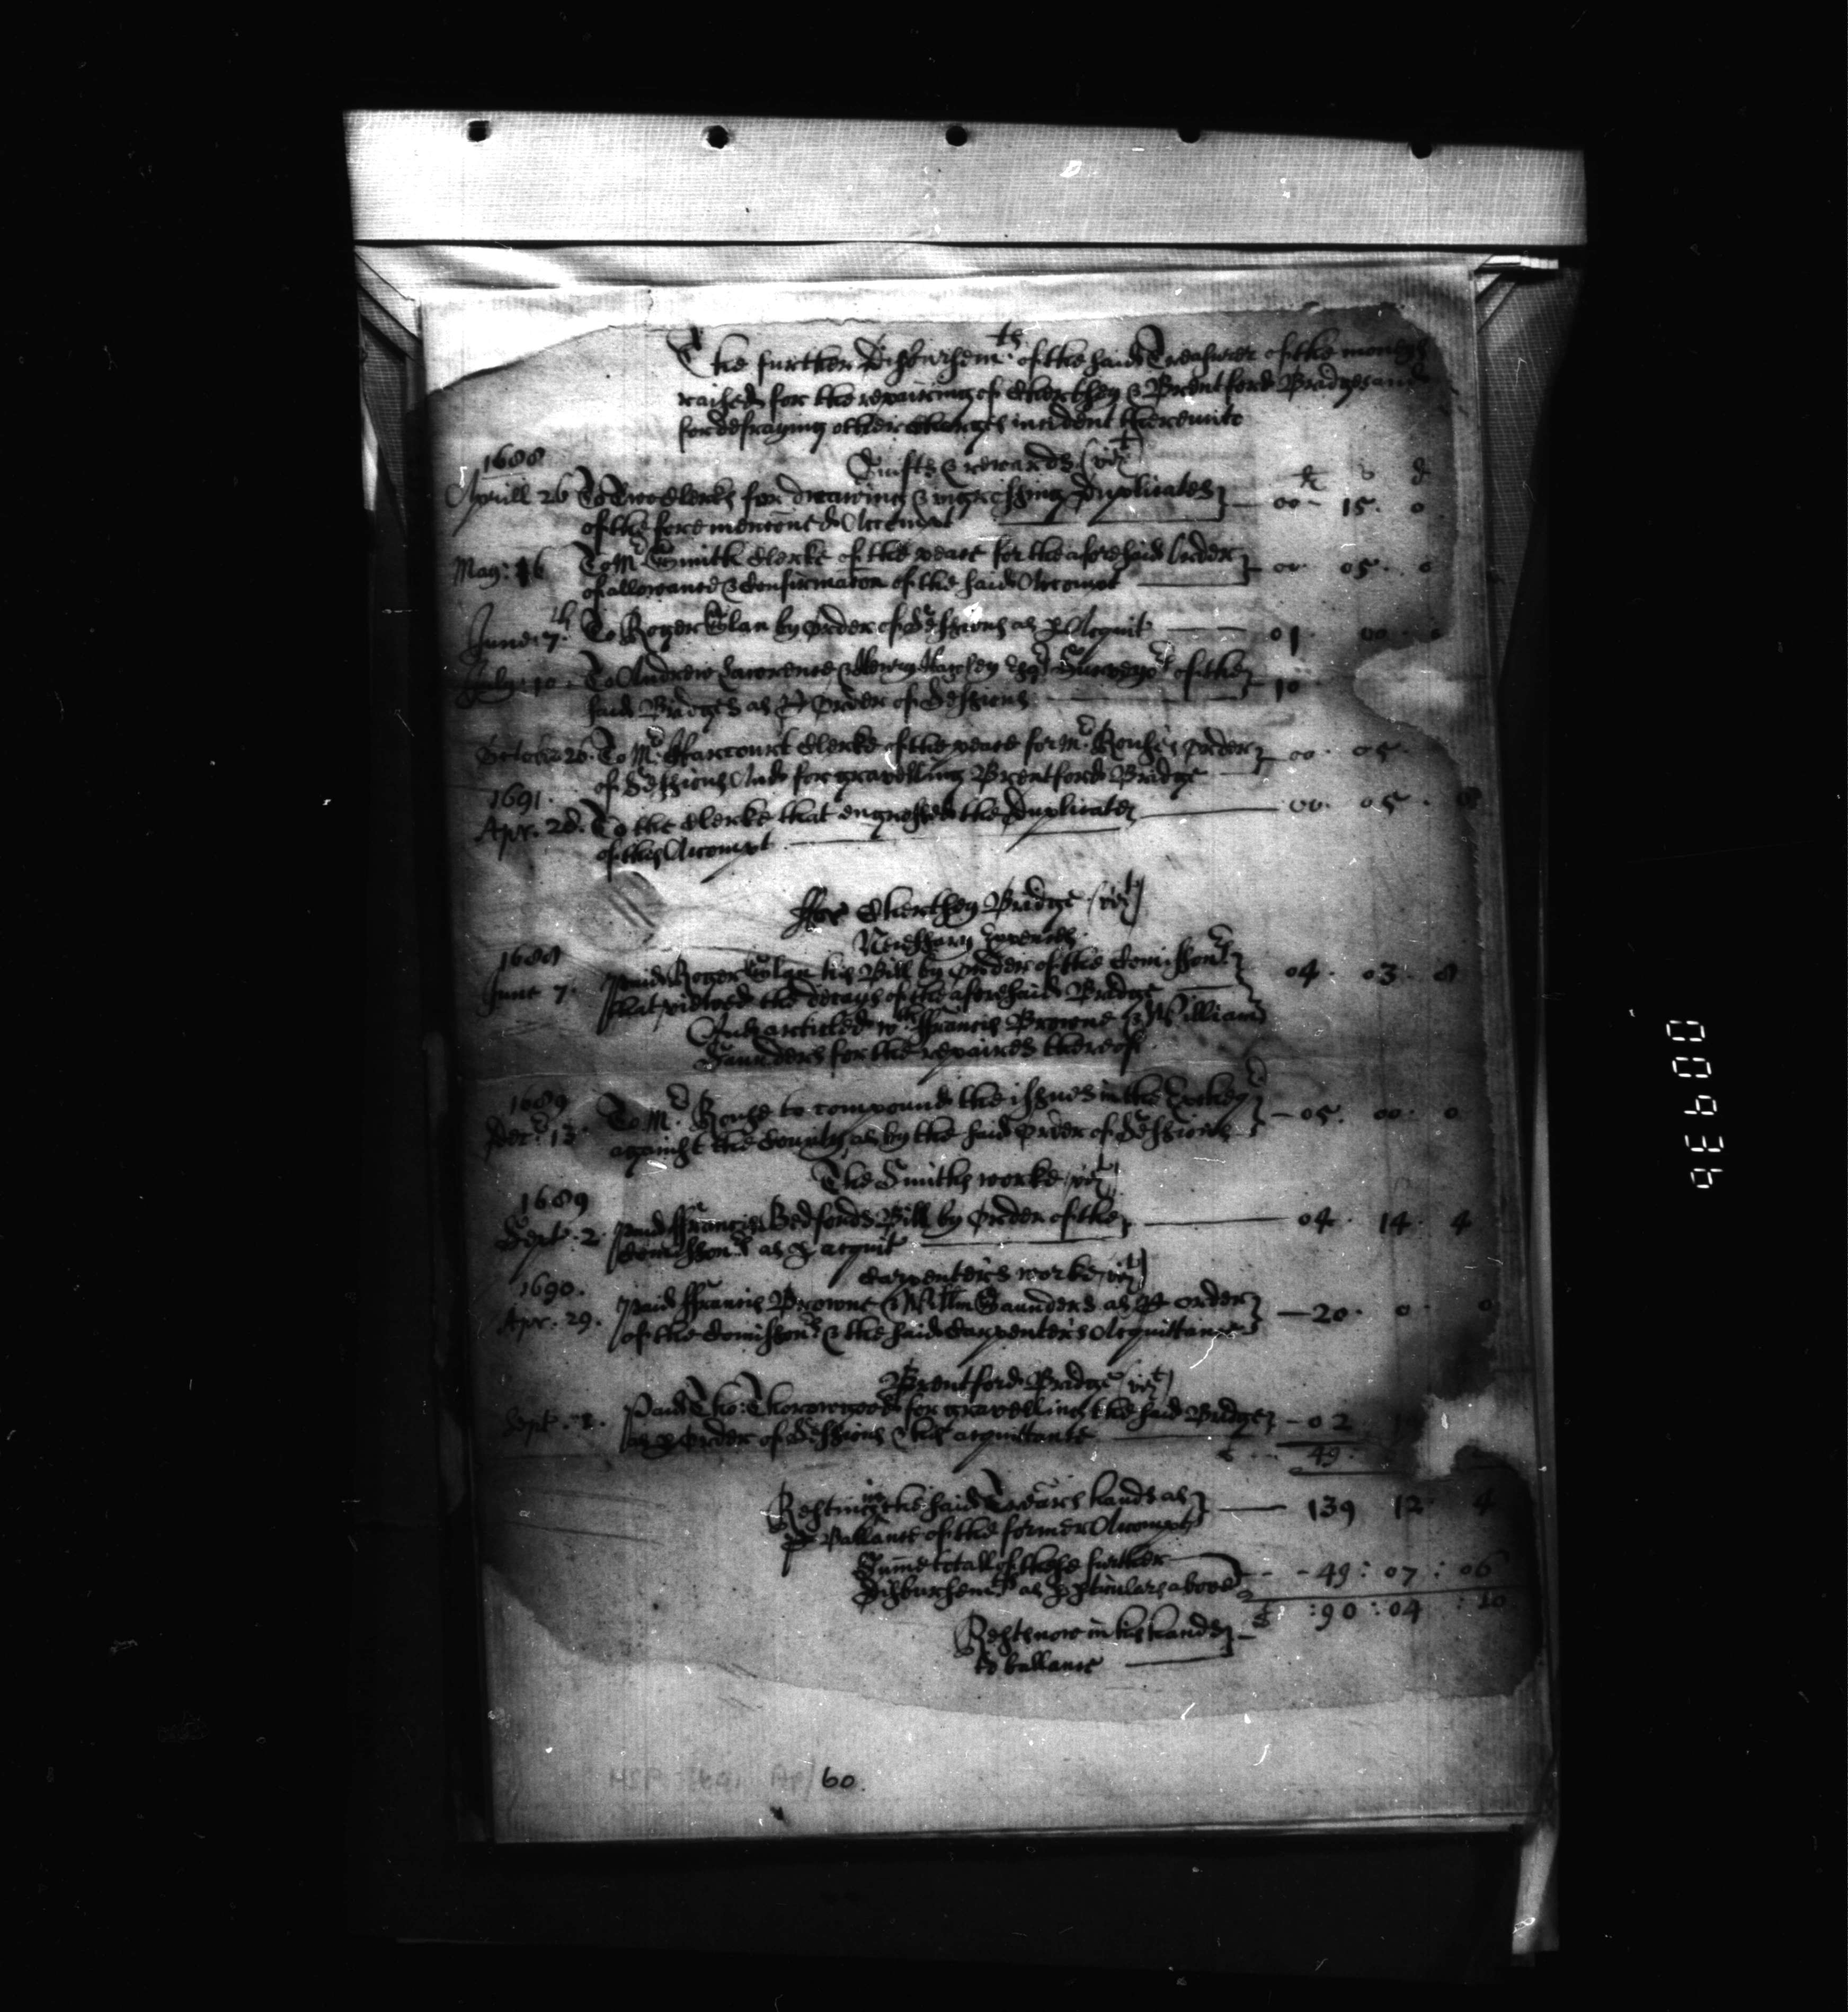 The further Disbursem.ts of the said Treasurer of the moneys
raised for the repairing of Chertsey & Brentford Bridges and
for defraying other Charges incident thereunto
1688
Guifts & rewards (vizt)
li s d
Aprill 26 To Two Clerks for drawing & ingrossing Duplicates
of the fore mencōned Accompt 00 15. 0
May: 16 To Mr Smith Clerke of the peace for the aforesaid
of allowance & Confirmacōn of the said Accompt 00 05. 0
June: 7th. To Roger by Order of Sessions as p Acquit 01. 00. 0
July: 10. To Andrew Lawrence & Esqrs Surveyors of the
said Bridges as p Order of Sessions 10
October 26. To Mr. Harcourt Clerke of the peace for Mr. Rouse's order
of Sessions And for gravelling Brentford Bridge 00. 05.
1691.
Apr. 28. To the Clerke that engrossed the Duplicates 00. 05.
of this Accompt
For Chertsey Bridge (vizt)
Necessary Expences
1688
June 7. paid Roger his Bill by order of the Comissionrs 04. 03. 8
that viewed the decays of the aforesaid Bridge
And articled wth ffrancis Browne & William
Saunders for the repaires thereof.
1689
Decr. 13. To Mr. Rouse to compound the issues in the Excheqr
against the County as by the said order of Sessions 05. 00. 0
The Smiths worke vizt
1689
Sept. 2. paid ffrancis Bedfords Bill by Order of the 04. 14. 4
Comissionrs as p acquit
Carpenters worke vizt
1690.
Apr. 29. paid ffrancis Browne & Willm Saunders as p order
of the Comissionrs & the said Carpenters Acquittance 20. 0. 0
Brentford Bridge (vizt)
Sept. Paid Tho: Thorowgood for gravelling the said Bridge 02
as p Order of Sessions & his acquittance
49:
Resting in the said Trēārs hands as
p Ballance of the former Accompt 139 12. 4
Sume totall of these further
Disbursemts as p pticulars above 49 : 07 : 06
: 90 : 04 : 10
Rests now in his hands
to ballance
60.
00936